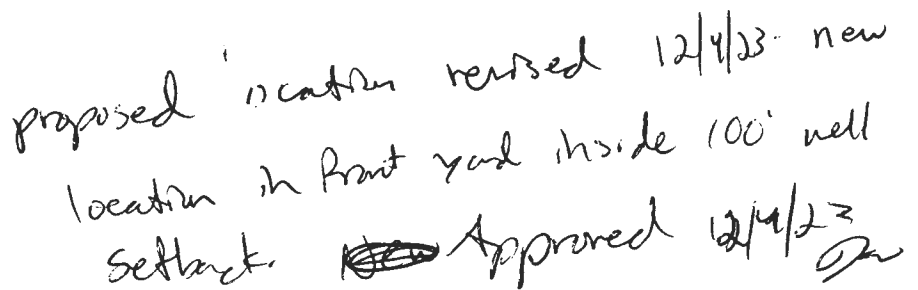 proposed location revised 12/4/23. new
location in front yard inside 100' well
setback. Approved 12/4/23